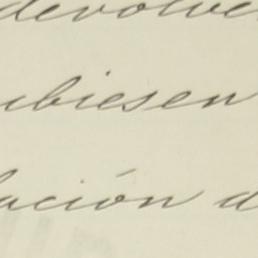 devolve
ubiesen
lación d